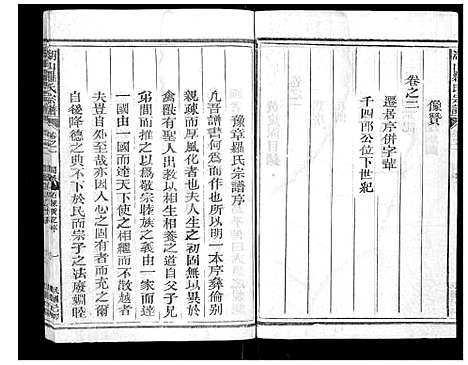 像贊
卷之二
遷居序併字輩
千四郎公位下世紀
豫章羅氏宗譜序
凡吾譜書何爲而作也所以明一本序彝倫别
親疎而作者也夫人生之初固無以異於
禽獸有聖人出以相生相養之道自父子兄
弟間而推之以爲敬宗睦族之義由一家而達
一國由一國而達天下使之相繼而不散越者
夫豈自外哉亦因人心之固有者而充之爾
自後降德之典不下於民而宗子之法廢婣睦